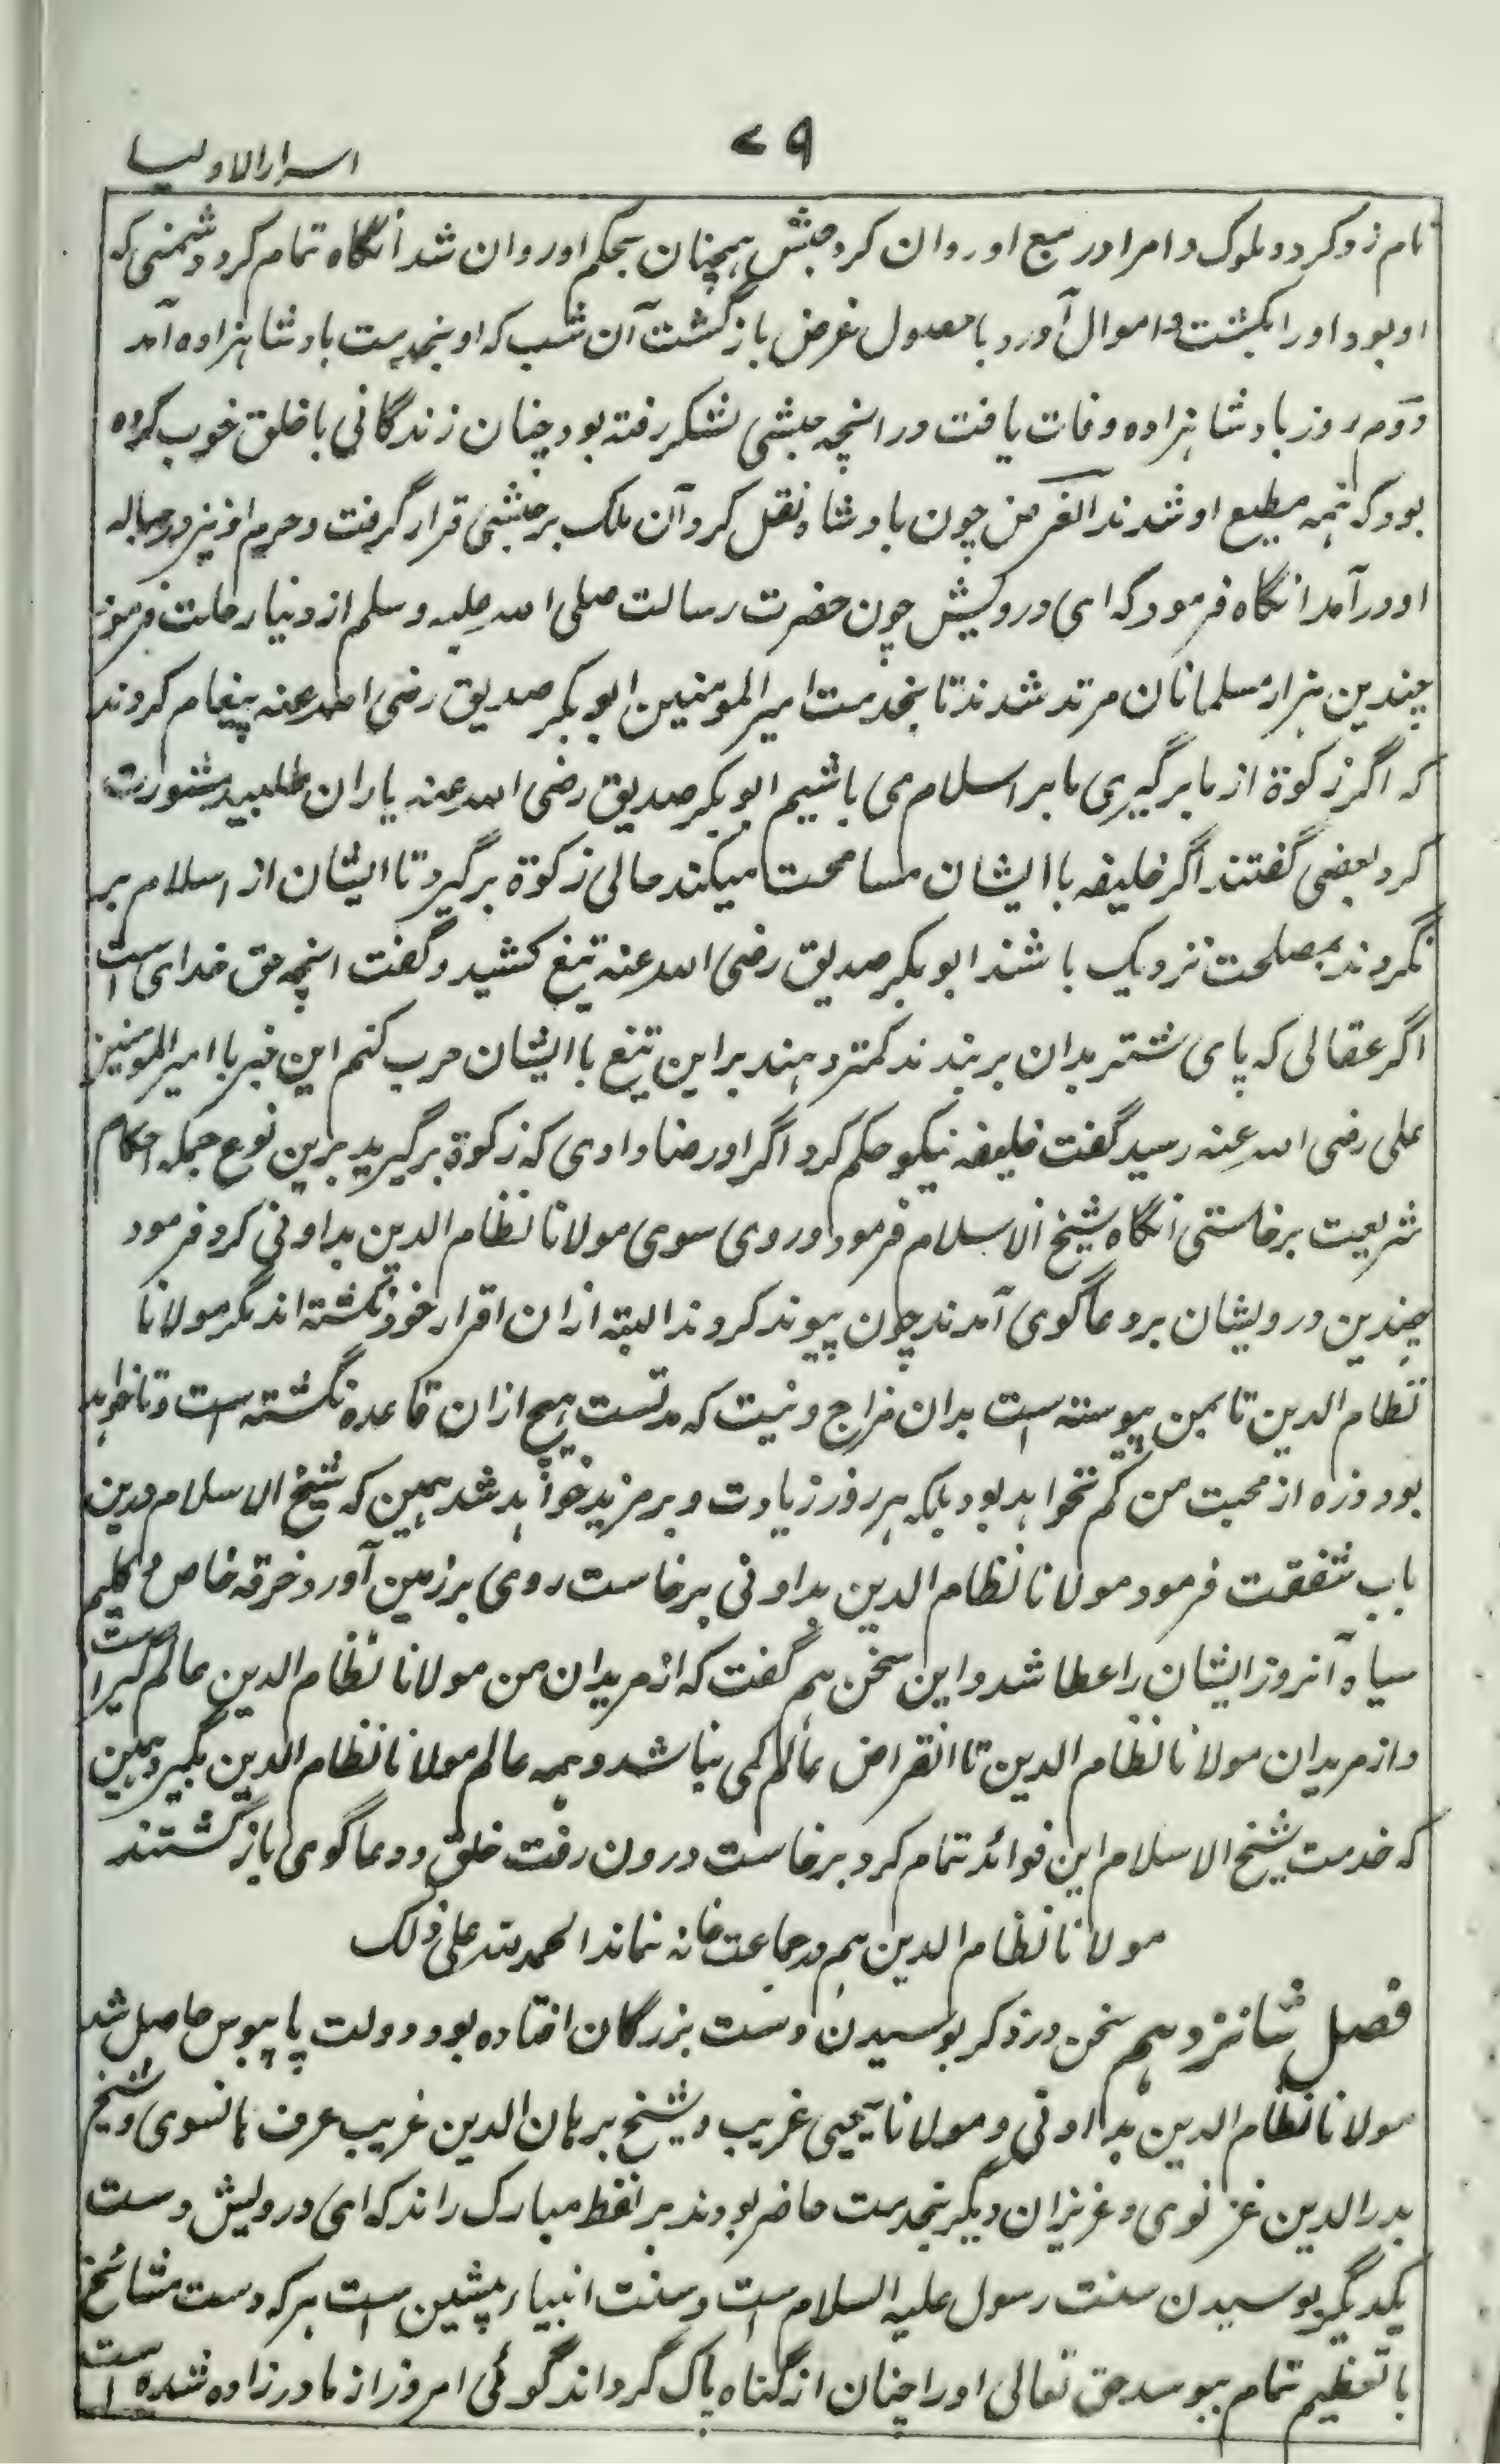 ۷۹
اسرارالاولیا
نام زد کرد و ملوک و امرا در تبع او روان کرد حبشی همچنان بحکم او روان شد آنگاه تمام کرد دشمنی که
او بود او را بکشت و اموال آورد با حصول غرض بازگشت آن شب که او بخدمت بادشاهزاده آمد
دوم روز بادشاهزاده وفات یافت در آنچه حبشی لشکر رفته بود چنان زندگانی با خلق خوب کرده
بود که همه مطیع او شدند الغرض چون بادشاه نقل کرد آن ملک بر حبشی قرار گرفت و حرم او نیز در حباله
او درآمد انگاه فرمود که ای درویش چون حضرت رسالت صلی الله علیه وسلم از دنیا رحلت فرمود
چندین هزار مسلمانان مرتد شدند تا بخدمت امیرالمومنین ابوبکر صدیق رضی الله عنه پیغام کردند
که اگر زکوة از ما برگیری ما بر اسلام می باشیم ابوبکر صدیق رضی الله عنه یاران طلبید مشورت
کرد بعضی گفتند اگر خلیفه با ایشان مسامحت میکند حالی زکوة برگیرد تا ایشان از اسلام بر
نگردند بمصلحت نزدیک باشد ابوبکر صدیق رضی الله عنه تیغ کشید و گفت انچه حق خدای است
اگر عقالی که پای شتر بدان بربندند کمتر دهند براین تیغ با ایشان حرب کنم این خبر با امیرالمومنین
علی رضی الله عنه رسید گفت خلیفه نیکو حکم کرد اگر او رضا دادی که زکوة برگیرید برین نوع جمله احکام
شریعت برخاستی انگاه شیخ الاسلام فرمود و روی سوی مولانا نظام الدین بداونی کرد فرمود
چندین درویشان بر دعاگوی آمدند چون پیوند کردند البته ازان اقرار خود نگشته اند مگر مولانا
نظام الدین تا بمن پیوسته است بدان مزاج و نیت که مدتست هیچ ازان قاعده نگشته است و نخواهد
بود و ذره از محبت من کم نخواهد بود بلکه هر روز زیادت و بر مزید خواهد شد همین که شیخ الاسلام درین
باب شفقت فرمود مولانا نظام الدین بداونی برخاست روی بر زمین آورد خرقه خاص و گلیم
سیاه آنروز ایشان را عطا شد و این سخن هم گفت که از مریدان من مولانا نظام الدین عالم گیر است
و از مریدان مولانا نظام الدین تا انقراض عالم کمی نباشد و همه عالم مولانا نظام الدین بگیرد همین
که خدمت شیخ الاسلام این فوائد تمام کرد برخاست درون رفت خلق و دعاگوی بازگشتند
مولانا نظام الدین هم در جماعت خانه نماند الحمد لله علی ذلک
فصل شانزدهم سخن در ذکر بوسیدن دست بزرگان افتاده بود و دولت پابوس حاصل شد
مولانا نظام الدین بداونی و مولانا یحیی غریب و شیخ برهان الدین غریب عرف هانسوی و شیخ
بدرالدین غزنوی و عزیزان دیگر بخدمت حاضر بودند بر لفظ مبارک راند که ای درویش دست
یکدیگر بوسیدن سنت رسول علیه السلام است و سنت انبیاء پیشین است هر که دست مشائخ
با تعظیم تمام ببوسد حق تعالی او را چنان از گناه پاک گرداند گوئی امروز از مادر زاده شده است